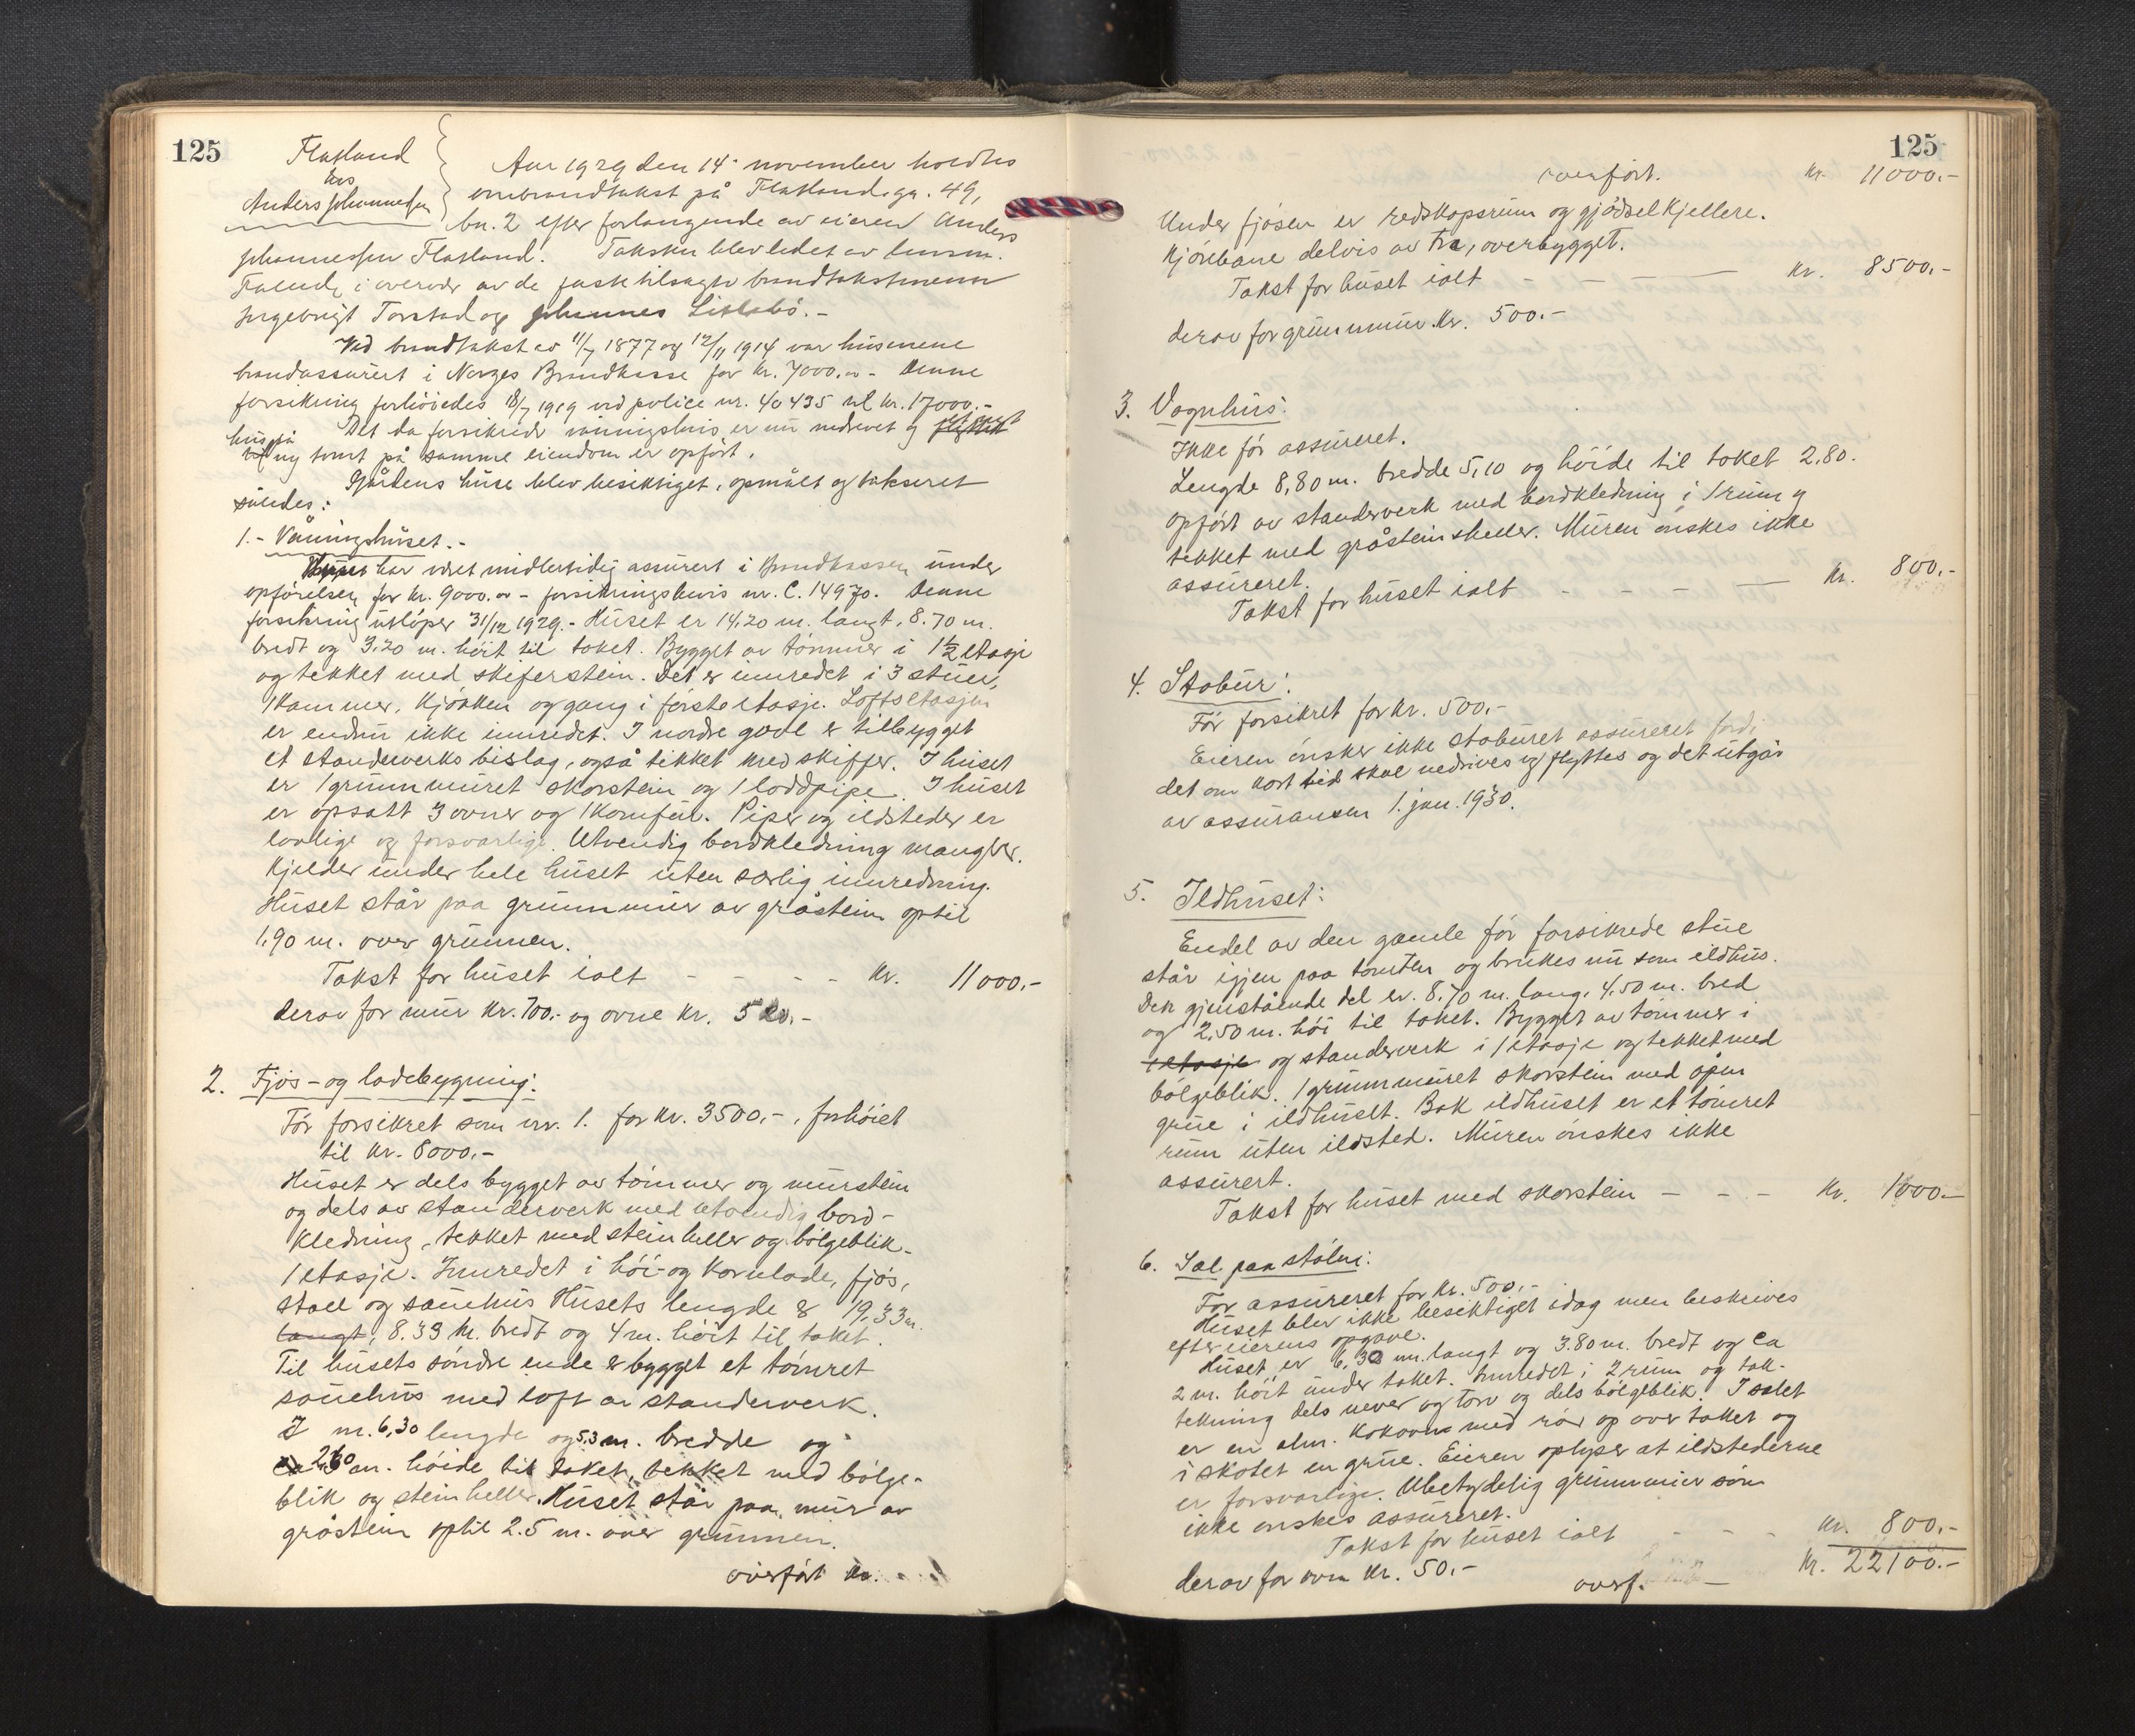 125
Flatland
hos
Anders Johannessen
Aar 1929 den 14. november holdtes
ombrandtakst på Flatland, gr. 49,
bn. 2 efter forlangende av eieren Anders
Johannessen Flatland. Taksten blev ledet av lensm.
i overvær av de fast tilsagte brandtakstmenn
Ingebrigt Torstad og Johannes Litlabö.-
Ved brandtakst av 11/7 1877 og 12/11 1914 var husmene
brandassurert i Norges Brandkasse for kr. 7000.00 - Denne
forsikring forhöiedes 18/7 1919 ved police nr. 40435 til kr. 17000.-
Det da forsikrede våningshus er nu nedrevet og flyttet
hus på ny tomt på samme eiendom er opfört.
Gårdens huse blev besiktiget, opmålt og takseret
således:
1.- Våningshuset.-
har vært midlertidig assurert i Brandkassen under
opförelsen for kr. 9000.00 - forsikringsbevis nr. C. 14970. Denne
forsikring utlöper 31/12 1929.- Huset er 14.20 m. langt, 8.70 m.
bredt og 3.20 m. höit til taket. Bygget av tömmer i 1½ etasje
og tekket med skiferstein. Det er innredet i 3 stuer,
1 kammer, kjökken og gang i förste etasje. Loftsetasjen
er endnu ikke innredet. I nordre gavl er tilbygget
et standerverks bislag, også tekket med skiffer. I huset
er 1 grunnmuret skorstein og 1 loddpipe. I huset
er opsatt 3 ovner og 1 komfur. Piper og ildsteder er
lovlige og forsvarlige. Utvendig bordkledning mangler.
Kjelder under hele huset uten særlig innredning.
Huset står paa grunnmur av gråstein optil
1,90 m. over grunnen.
Takst for huset ialt - - - - kr. 11000.-
derav for mur kr. 700.- og ovne kr. 500.-
2. Fjös- og ladebygning:
För forsikret som nr. 1. for kr. 3500,-, forhöiet
til kr. 8000.-
Huset er dels bygget av tömmer og murstein
og dels av standerverk med utvendig bord-
kledning, tekket med steinheller og bölgeblik.
1 etasje. Innredet i höi- og kornlade, fjös,
stall og sauehus Husets lengde er 19,33 m.
langt, 8.39 m. bredt og 4 m. höit til taket.
Til husets söndre ende er bygget et tömret
sauehus med loft av standerverk.
I m. 6,30 lengde og 5.3 m. bredde og
ca 2.60 m. höide til taket, tekket med bölge-
blik og steinheller. Huset står paa mur av
gråstein optil 2.5 m. over grunnen.
overfört kr.
125
overfört. kr. 11000.-
Under fjösen er redskapsrum og gjödselkjellere.
Kjörebane delvis av tre, overbygget.
Takst for huset ialt - - - kr. 8500.-
derav for grunnmur kr. 500.-
3. Vognhus:
Ikke för assureret.
Lengde 8,80 m. bredde 5,10 og höide til taket 2,80.
opfört av standerverk med bordkledning i 1 rum og
tekket med gråsteinsheller. Muren önskes ikke
assureret.
Takst for huset ialt - - - kr. 800.-
4. Stabur:
För forsikret for kr. 500.-
Eieren önsker ikke staburet assureret fordi
det om kort tid skal nedrives og flyttes og det utgår
av assuransen 1. jan. 1930.
5. Ildhuset:
Endel av den gamle för forsikrede stue
står igjen paa tomten og brukes nu som ildhus.
Den gjenstående del er 8.70 m. lang, 4,50 m. bred
og 2,50 m. höi til taket. Bygget av tömmer i
1 etasje og standerverk i 1 etasje og tekket med
bölgeblik. 1 grunnmuret skorstein med åpen
grue i ildhuset. Bak ildhuset er et tömret
rum uten ildsted. Muren önskes ikke
assurert.
Takst for huset med skorstein - - - kr. 1000.-
6. Sæl paa stölen:
För assureret for kr. 500.-
Huset blev ikke besiktiget idag men beskrives
efter eierens opgave.
Huset er 6,30 m. langt og 3.80 m. bredt og ca
2 m. höit under taket. Innredet i 2 rum og tak-
tekning dels never og torv og dels bölgeblik. I selet
er en alm. kokovn med rör op over taket og
i skotet en grue. Eieren oplyser at ildstederne
er forsvarlige. Ubetydelig grunnmur som
ikke önskes assureret.
Takst for huset ialt - - - kr. 800.-
derav for ovn kr. 50.-
overf. - kr. 22100.-